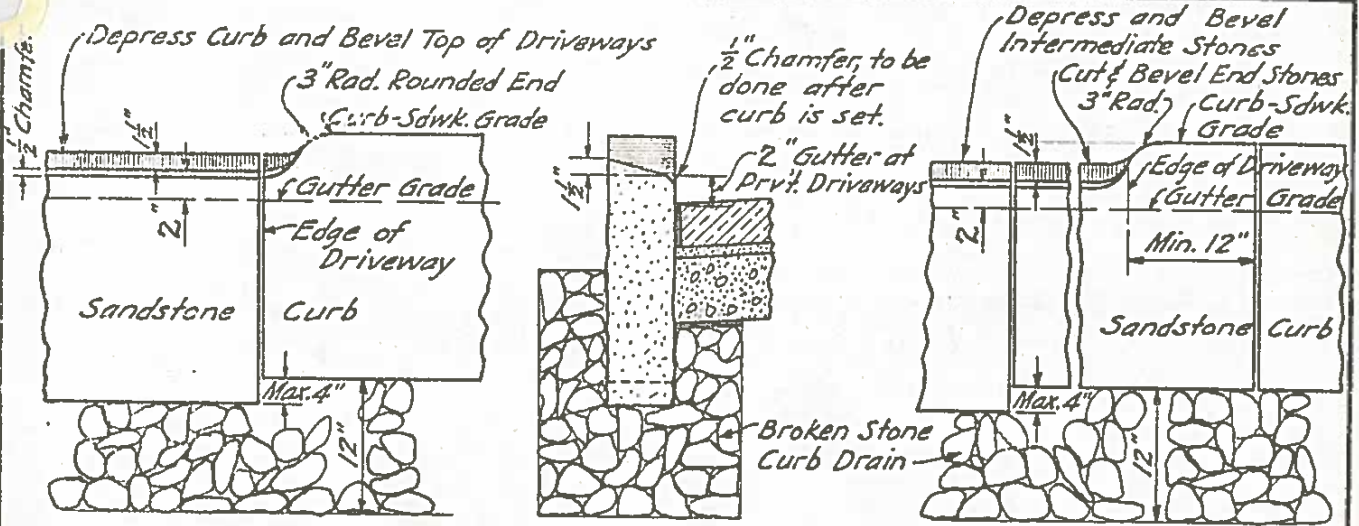 Depress Curb and Bevel Top of Driveways
3" Rad. Rounded End
Curb-Sdwk. Grade
1/2" Chamfer
1 1/2"
Gutter Grade
2"
Edge of
Driveway
Sandstone Curb
Max. 4"
12"
1/2" Chamfer, to be
done after
curb is set.
2" Gutter at
Prvt. Driveways
1 1/2"
Broken Stone
Curb Drain
Depress and Bevel
Intermediate Stones
Cut & Bevel End Stones
3" Rad.
Curb-Sdwk.
Grade
1 1/2"
Edge of Driveway
Gutter Grade
2"
Min. 12"
Sandstone Curb
Max. 4"
12"